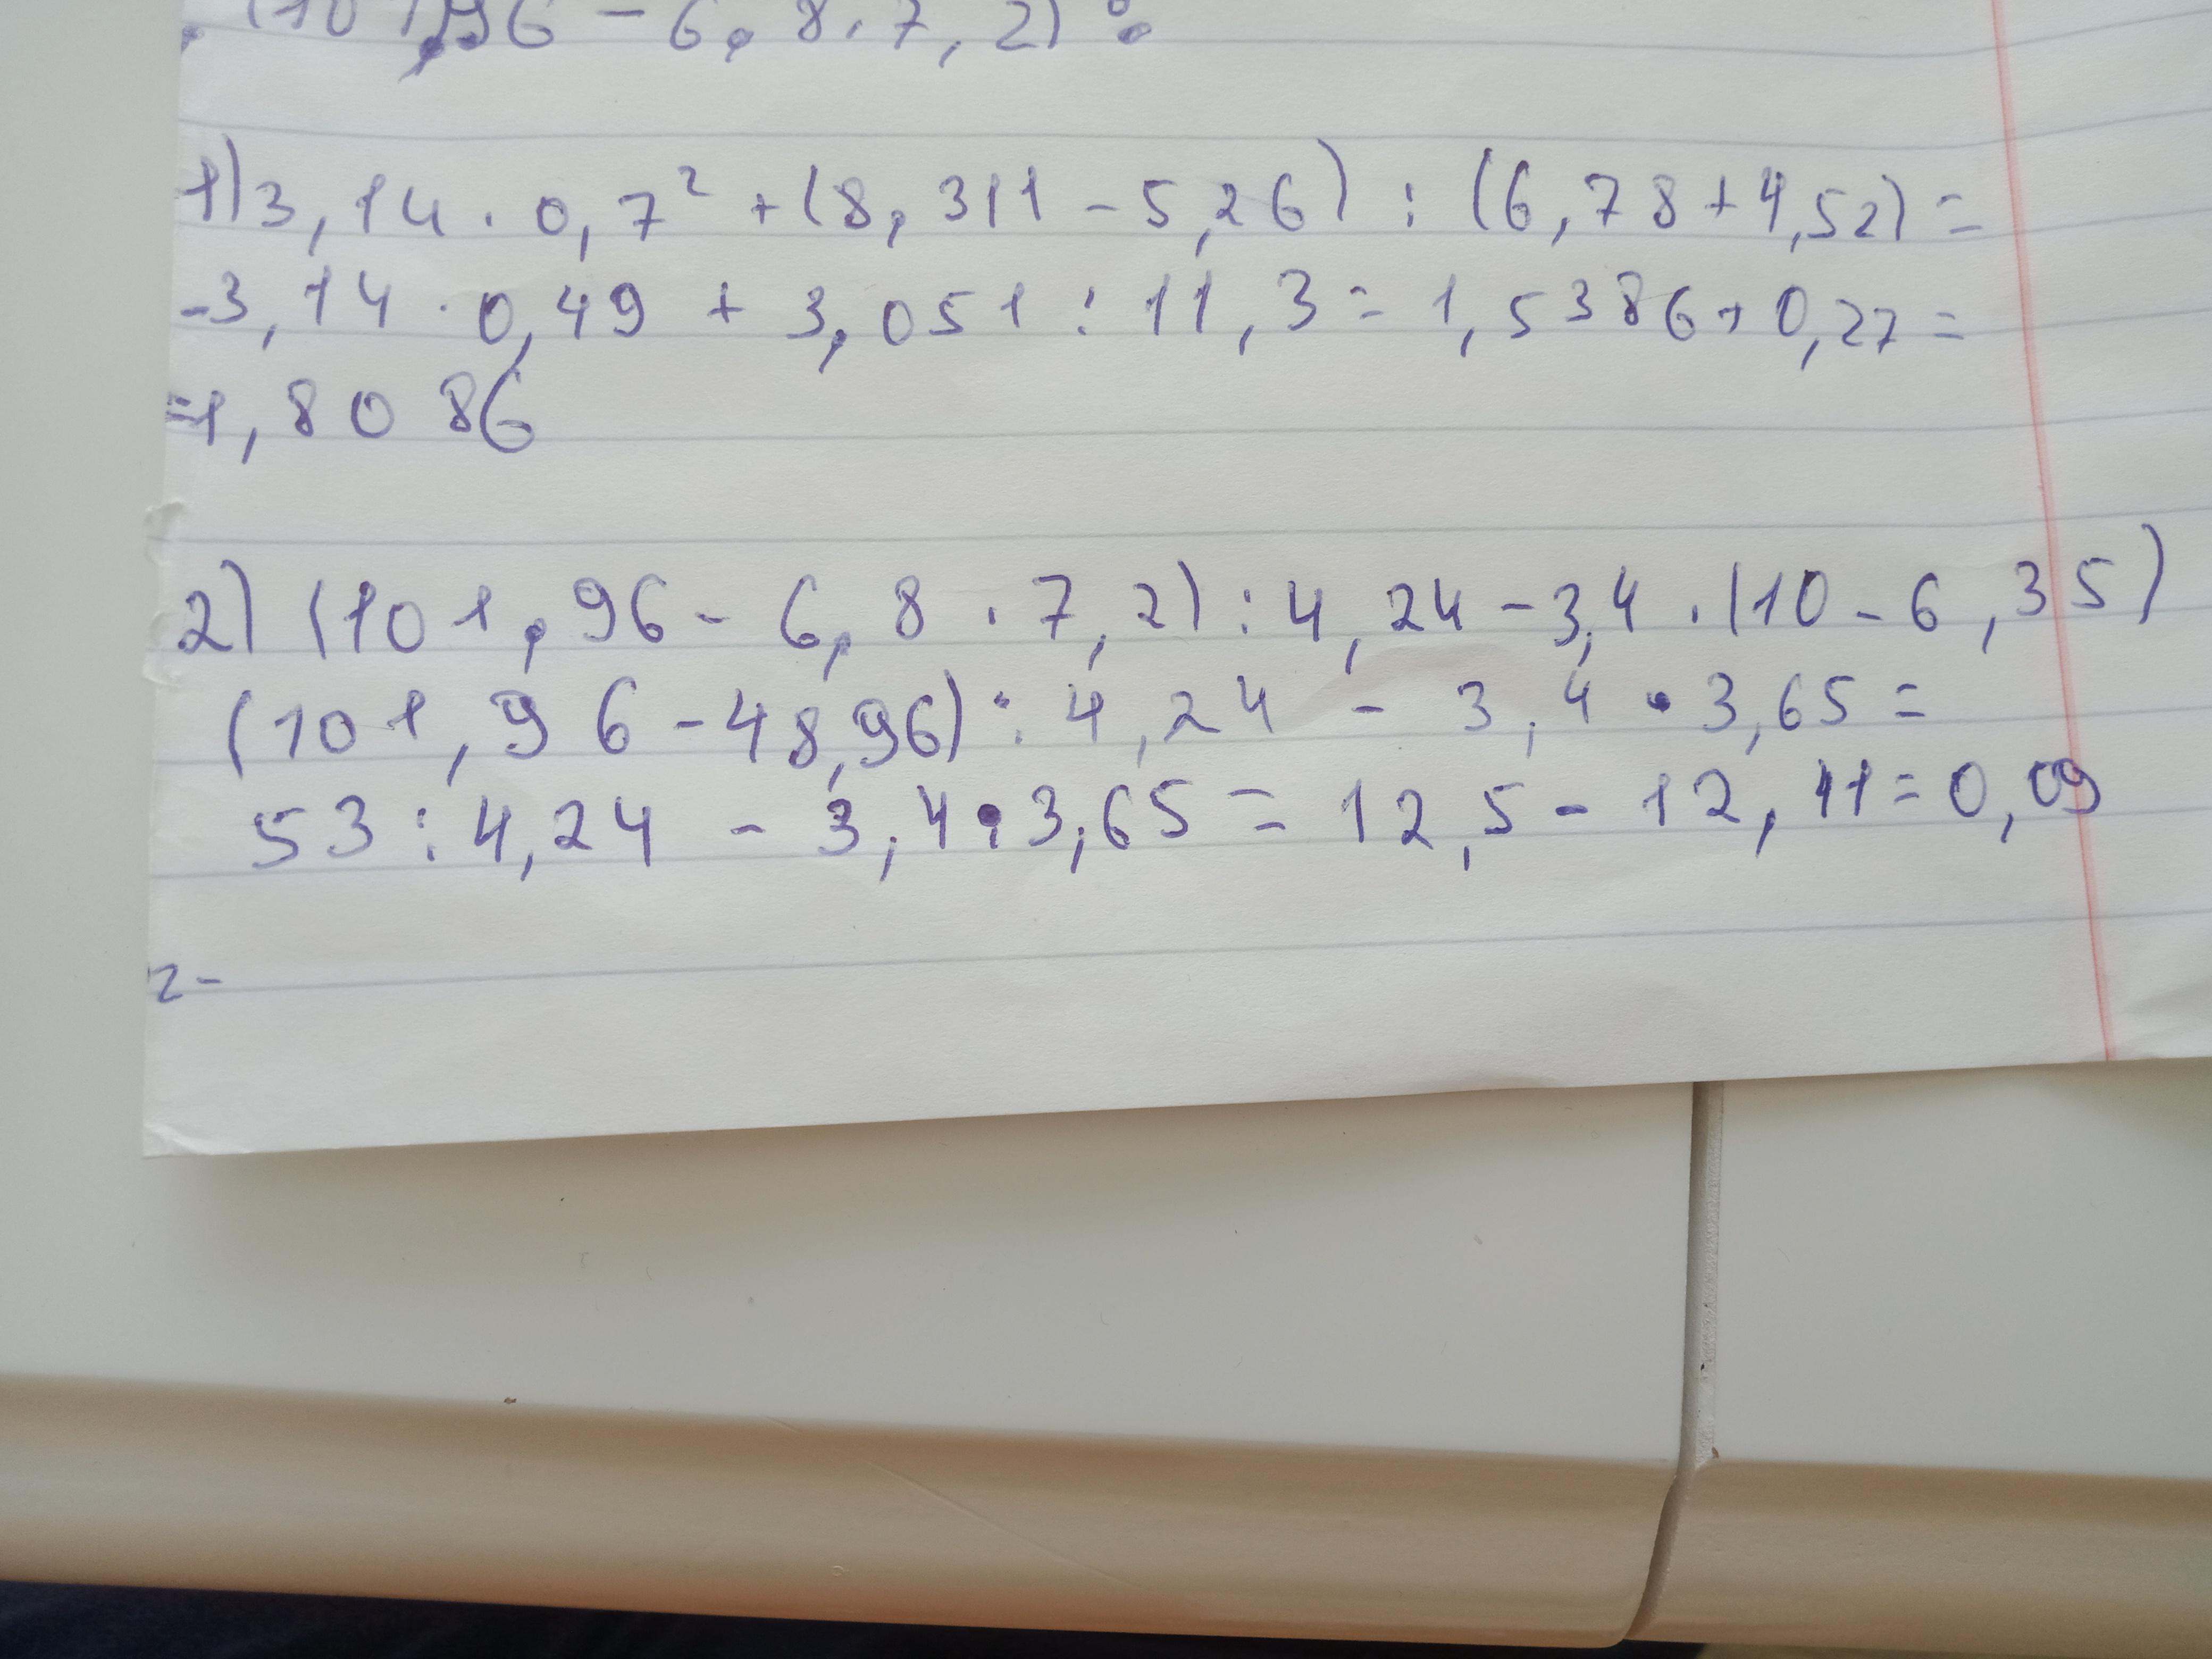 (101,96 - 6,8·7,2) :
1) 3,14 · 0,7² + (8,311 - 5,26) : (6,78 + 4,52) =
-3,14 · 0,49 + 3,051 : 11,3 = 1,5386 + 0,27 =
=1,8086
2) (101,96 - 6,8 · 7,2) : 4,24 - 3,4 · (10 - 6,35)
(101,96 - 48,96) : 4,24 - 3,4 · 3,65 =
53 : 4,24 - 3,4 · 3,65 = 12,5 - 12,41 = 0,09
2-